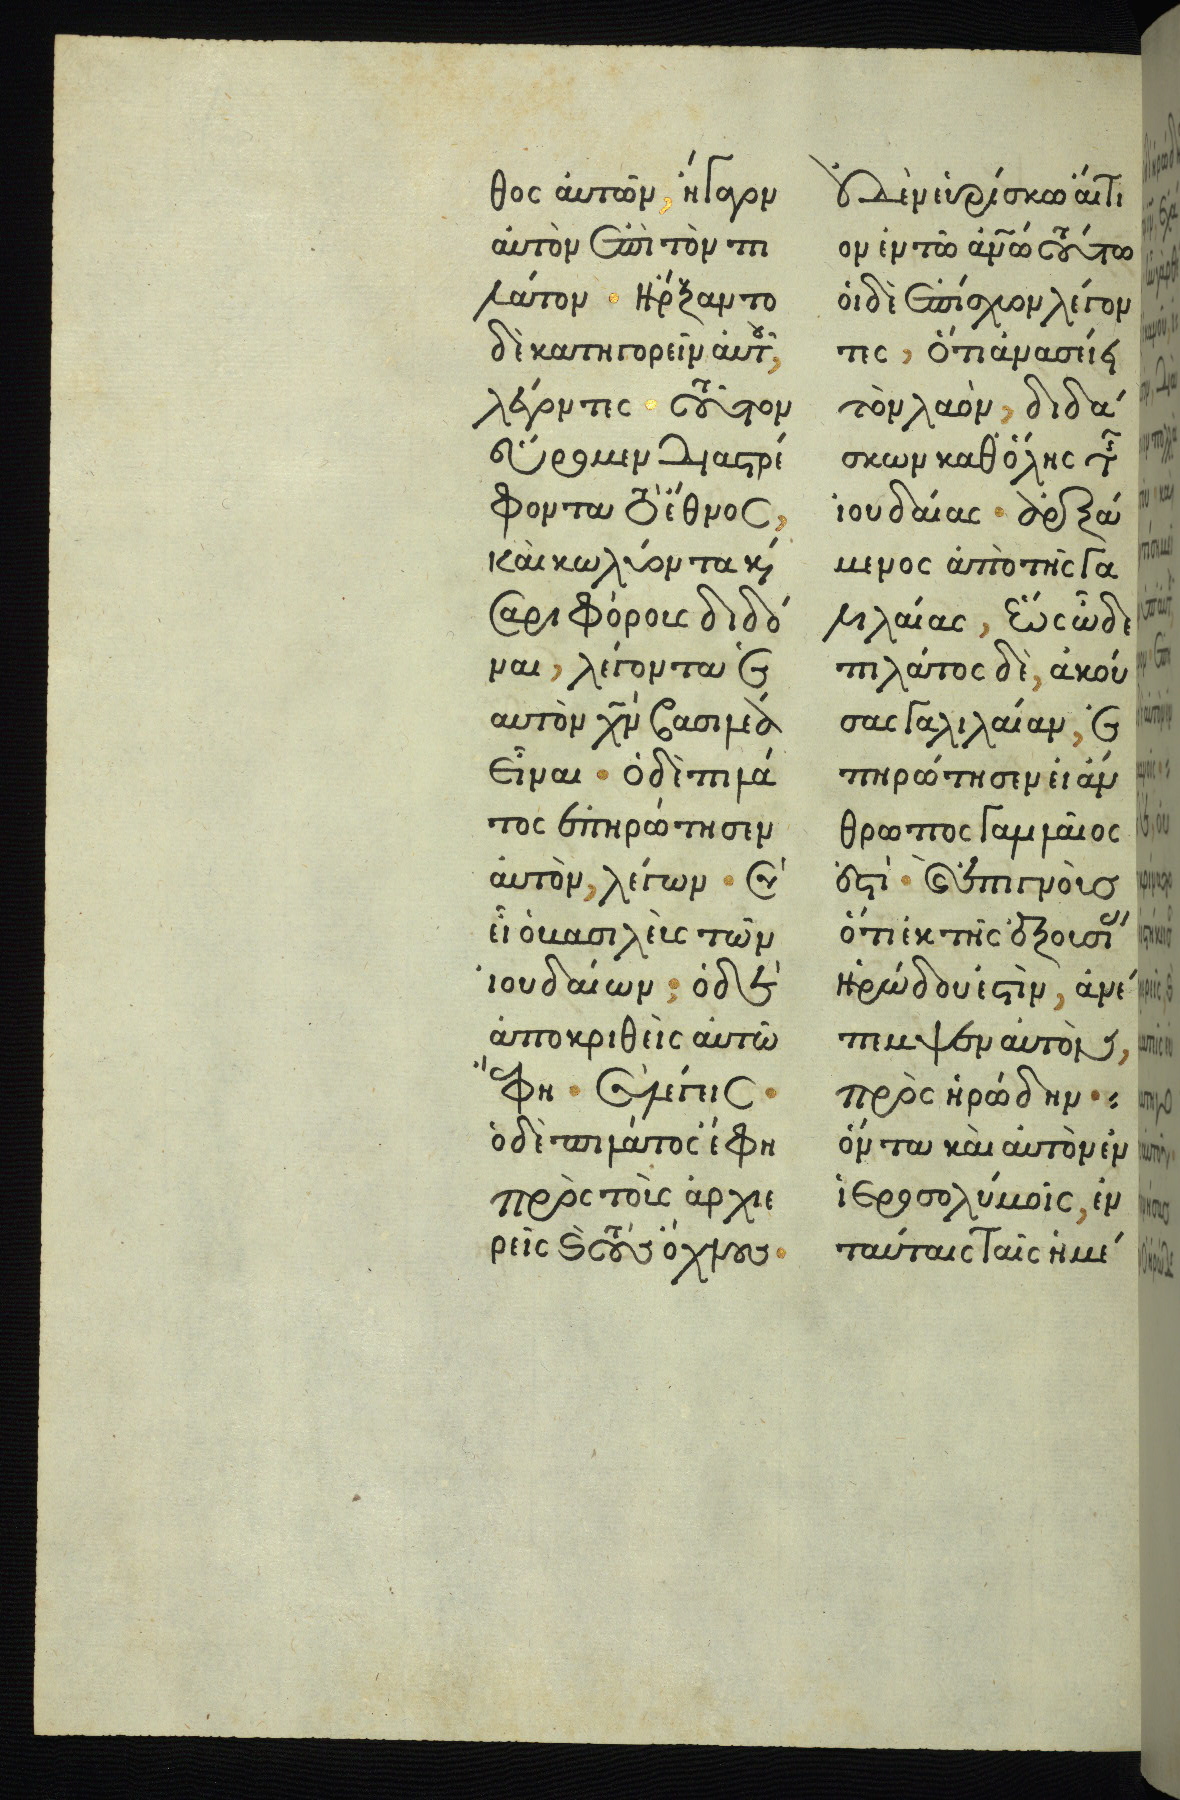 θος ἀυτῶν, ἤγαγον
ἀυτὸν ἐπὶ τὸν πι
λάτον · Ἤρξαντο
δὲ κατηγορεῖν ἀυτοῦ,
λέγοντες · τοῦτον
ἕυρομεν διαστρέ
φοντα τὸ ἔθνος,
καὶ κωλύοντα καί
σαρι φόρους διδό
ναι, λέγοντα ἑ
αυτὸν χν βασιλέα
εἶναι · ὁ δὲ πιλά
τος ἐπηρώτησεν
ἀυτὸν, λέγων · σὺ
εἶ ὁ βασιλεὺς τῶν
ἰουδαίων ; ὁ δὲ
ἀποκριθεὶς ἀυτῶ
ἔφη · σὺ λέγεις ·
ὁ δὲ πιλάτος ἔφη
πρὸς τοὺς ἀρχιε
ρεῖς καὶ τοὺς ὄχλους ·
οὐδὲν ἑυρίσκω ἄιτι
ον ἐν τῶ ἀνω τούτω
ὁι δὲ ἐπίσχυον λέγον
τες, ὅτι ἀνασείει
τὸν λαὸν, διδά
σκων καθ ὅλης τῆς
ἰουδαίας · ἀρξά
μενος ἀπὸ τῆς γα
λιλαίας, ἕως ὧδε
πιλάτος δὲ, ἀκού
σας γαλιλαίαν, ἐ
πηρώτησεν ἐι ἄν
θρωπος γαλιλαῖος
ἐστί · καὶ ἐπιγνοὺς
ὅτι ἐκ τῆς ἐξουσί
ἡρώδου ἐστὶν, ἀνέ
πεμψεν ἀυτὸν,
πρὸς ἡρώδην · :
ὄντα καὶ ἀυτὸν ἐν
ἱεροσολύμοις, ἐν
ταύταις ταῖς ἡμέ